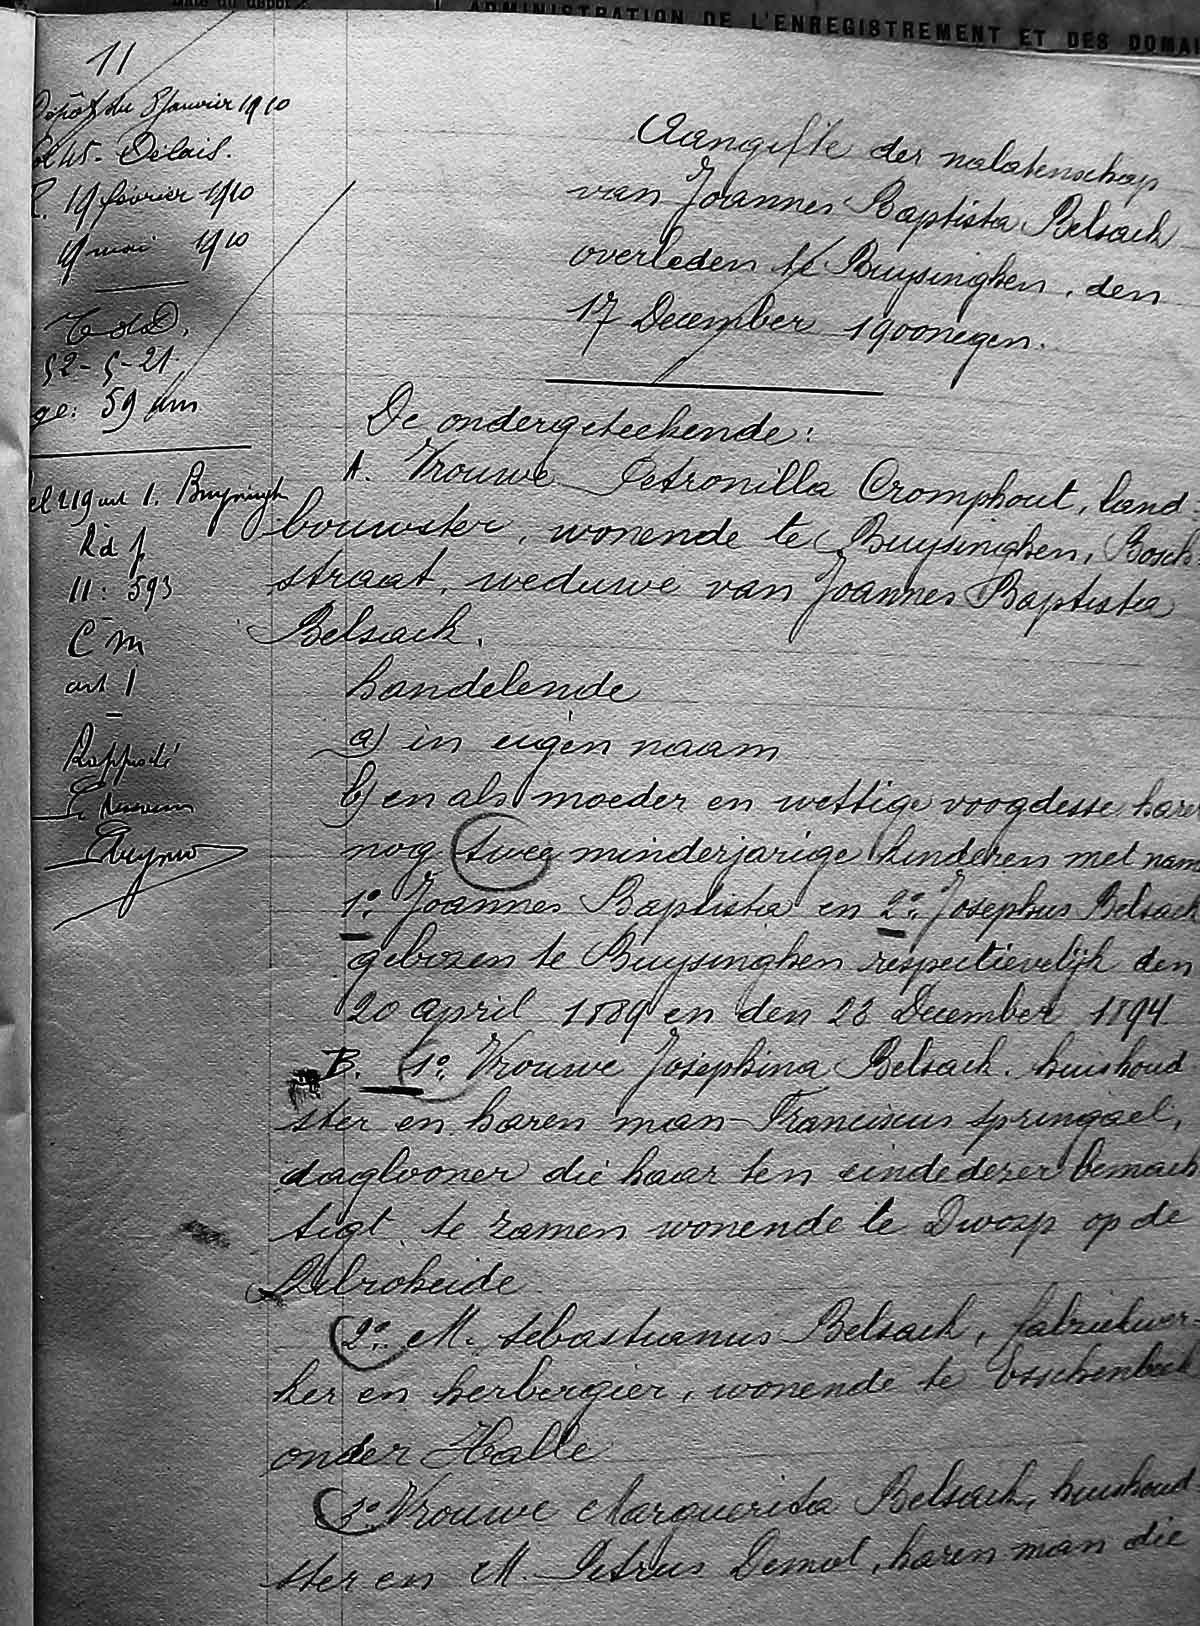 ADMINISTRATION DE L'ENREGISTREMENT ET DES DOMAI
11
Dépôt du 8 Janvier 1910
Délais.
19 février 1910
19 mai 1910
52-5-21.
59 ans
219 art 1.
R d f
11: 593
C m
art 1
Aangifte der nalatenschap
van Joannes Baptista Belsack
overleden te Buysinghen, den
17 December 1900negen.
De ondergeteekende:
A. Vrouwe Petronilla Cromphout, land
bouwster, wonende te Buysinghen, Bosch
straat, weduwe van Joannes Baptista
Belsack.
handelende
a) in eigen naam
b) en als moeder en wettige voogdesse hare
nog twee minderjarige kinderen met nam
1º. Joannes Baptista en 2º. Josephus Belsack
geboren te Buysinghen respectievelijk den
20 april 1889 en den 23 December 1894
B. 1º. Vrouwe Josephina Belsack. huishoud
ster en haren man Franciscus Springael,
daglooner die haar ten einde dezer bemach
tigt te zamen wonende te Dworp op de
2º. M. Sebastianus Belsack, fabriekwer-
ker en herbergier, wonende te Esschenbeek
onder Halle
3º Vrouwe Marguerita Belsack, huishoud
ster en M. Petrus Demol, haren man die